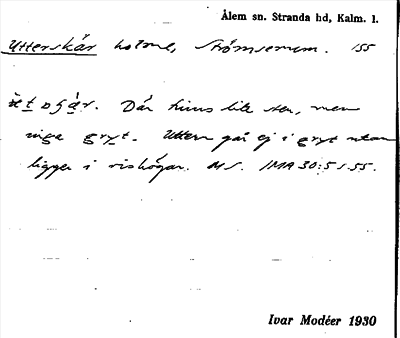 Ålem sn. Stranda hd, Kalm. l.
Utterskär holme, Strömserum. 155
Där finns lite sten, men
inga gryt. Uttern går ej i gryt utan
ligger i rishögar. MS. IMA 30:5 s. 55.
Ivar Modéer 1930